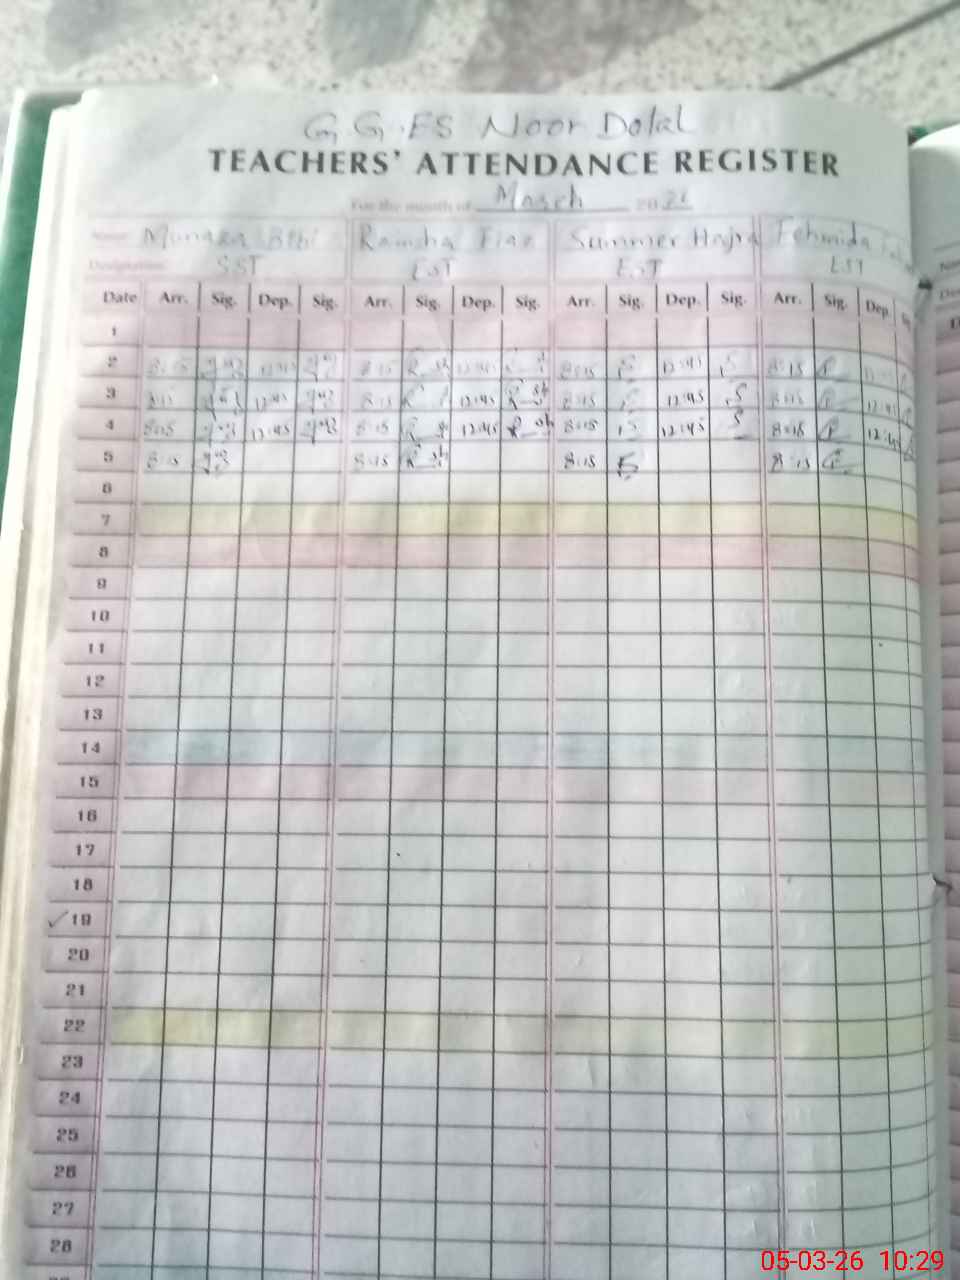 G.G.ES Noor Dolal
TEACHERS' ATTENDANCE REGISTER
For the month of March 20 26
Name: Munaza Bibi Ramsha Fiaz Summer Hajra Fehmida
Designation: SST EST EST EST
Date Arr. Sig. Dep. Sig. Arr. Sig. Dep. Sig. Arr. Sig. Dep. Sig. Arr. Sig. Dep.
1
2 8:15 12:45 8:15 12:45 8:15 12:45 8:15 12:45
3 8:15 12:45 8:15 12:45 8:15 12:45 8:15 12:45
4 8:15 12:45 8:15 12:45 8:15 12:45 8:15 12:45
5 8:15 8:15 8:15 8:15
6
7
8
9
10
11
12
13
14
15
16
17
18
✓19
20
21
22
23
24
25
26
27
28
05-03-26 10:29